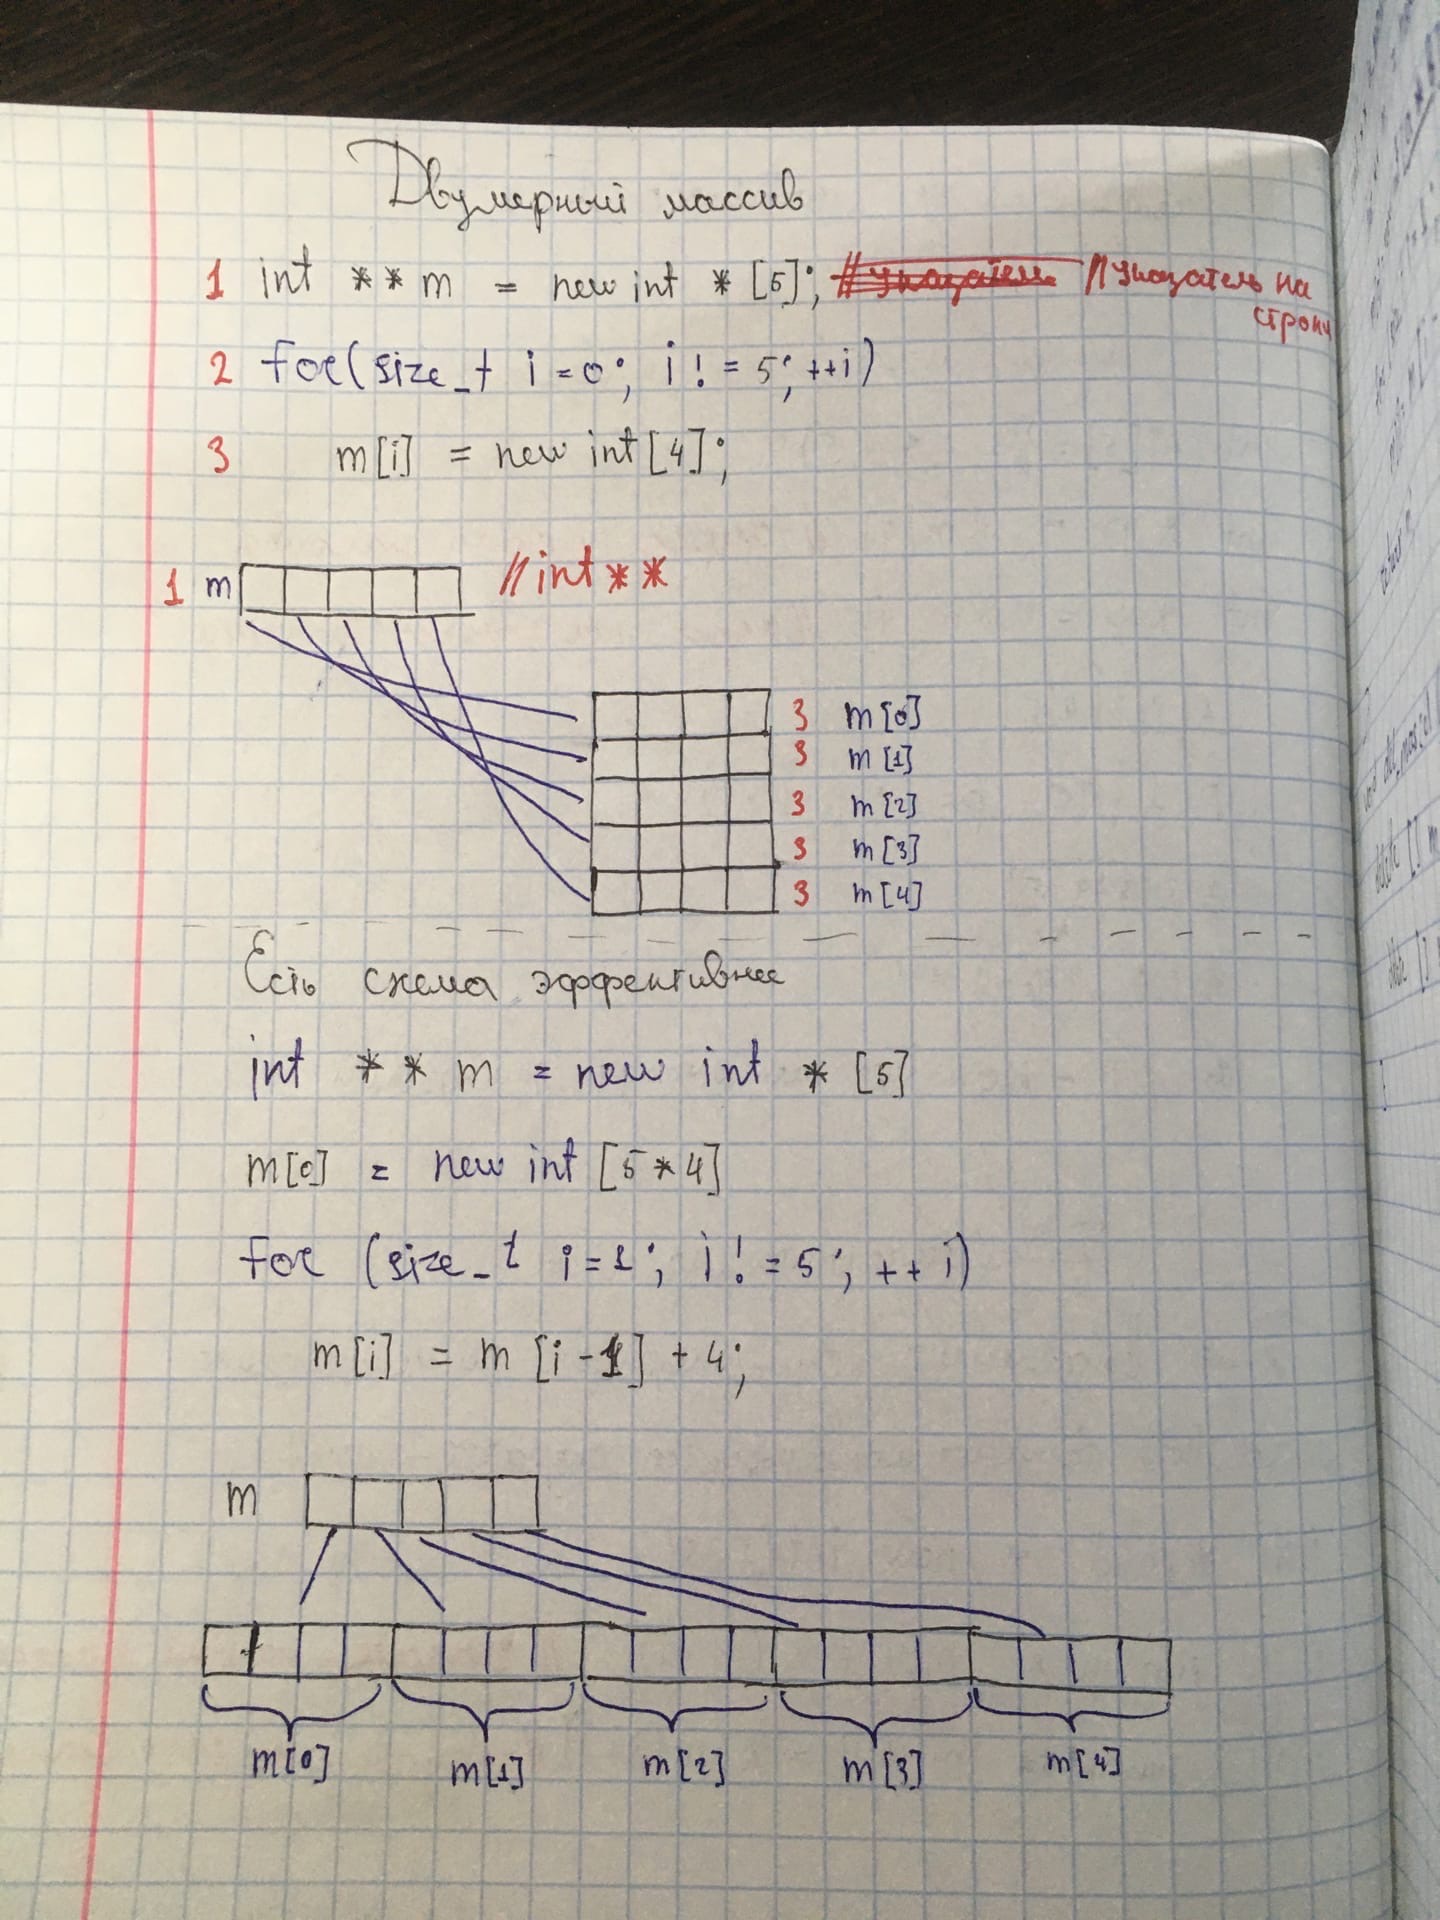 Двумерный массив
1 int ** m = new int * [5]; //указатель на
строки
2 for(size_t i=0; i!=5; ++i)
3 m[i] = new int[4];
1 m //int**
3 m[0]
3 m[1]
3 m[2]
3 m[3]
3 m[4]
Есть схема эффективнее
int ** m = new int * [5]
m[0] = new int [5*4]
for (size_t i=1; i!=5; ++i)
m[i] = m [i-1] + 4;
m
m[0] m[1] m[2] m[3] m[4]